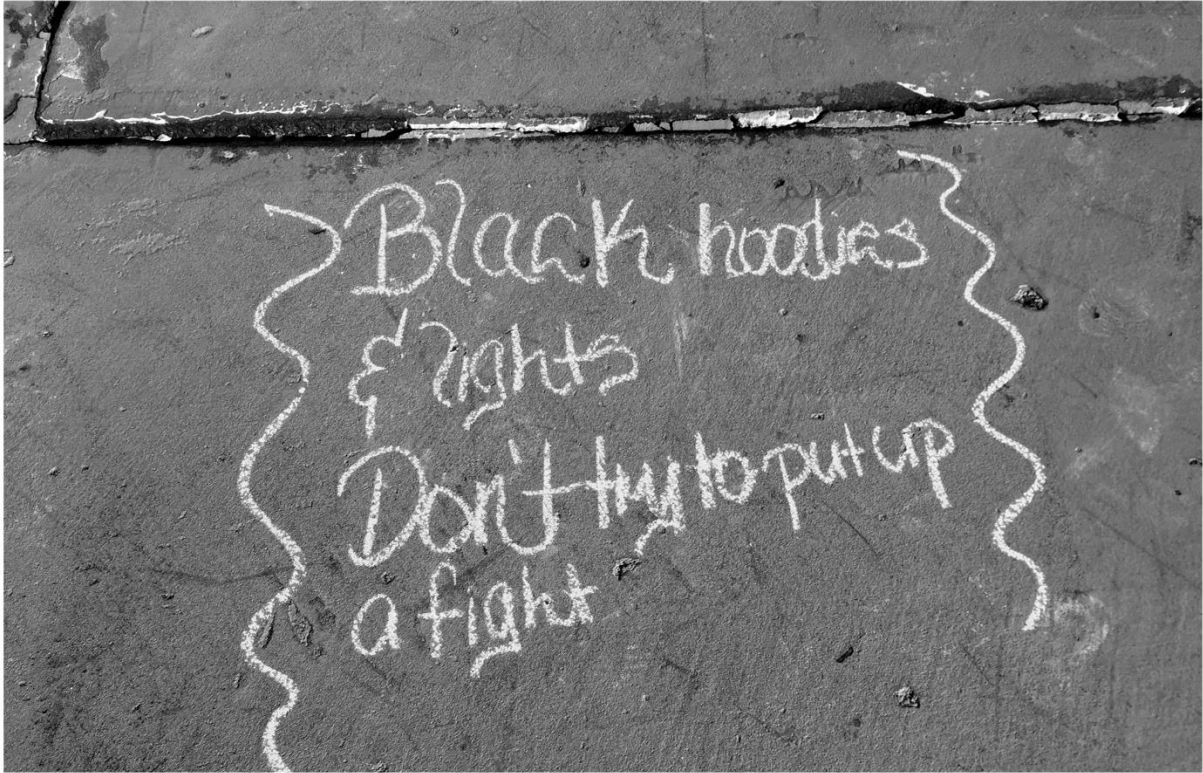 Black hoodies
& lights
Don't try to put up
a fight